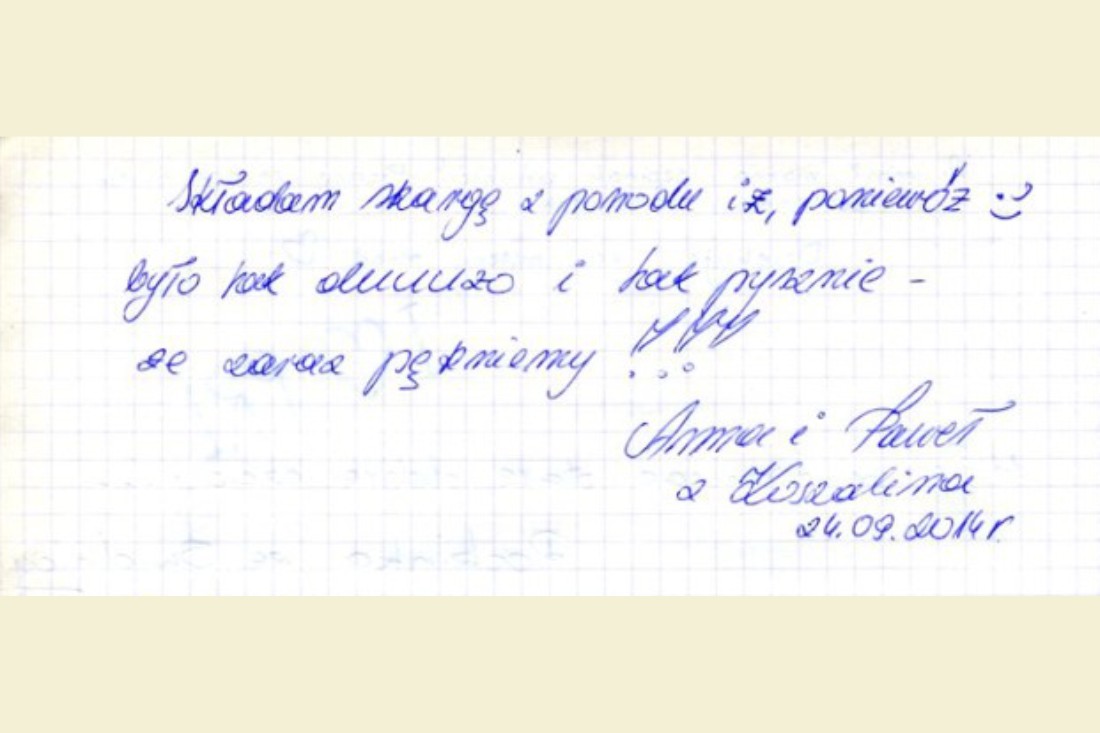 Składam skargę z powodu iż, poniewóż :)
było tak duuużo i tak pysznie -
że zaraz pękniemy !!!
Anna i Paweł
z Koszalina
24.09.2014 r.